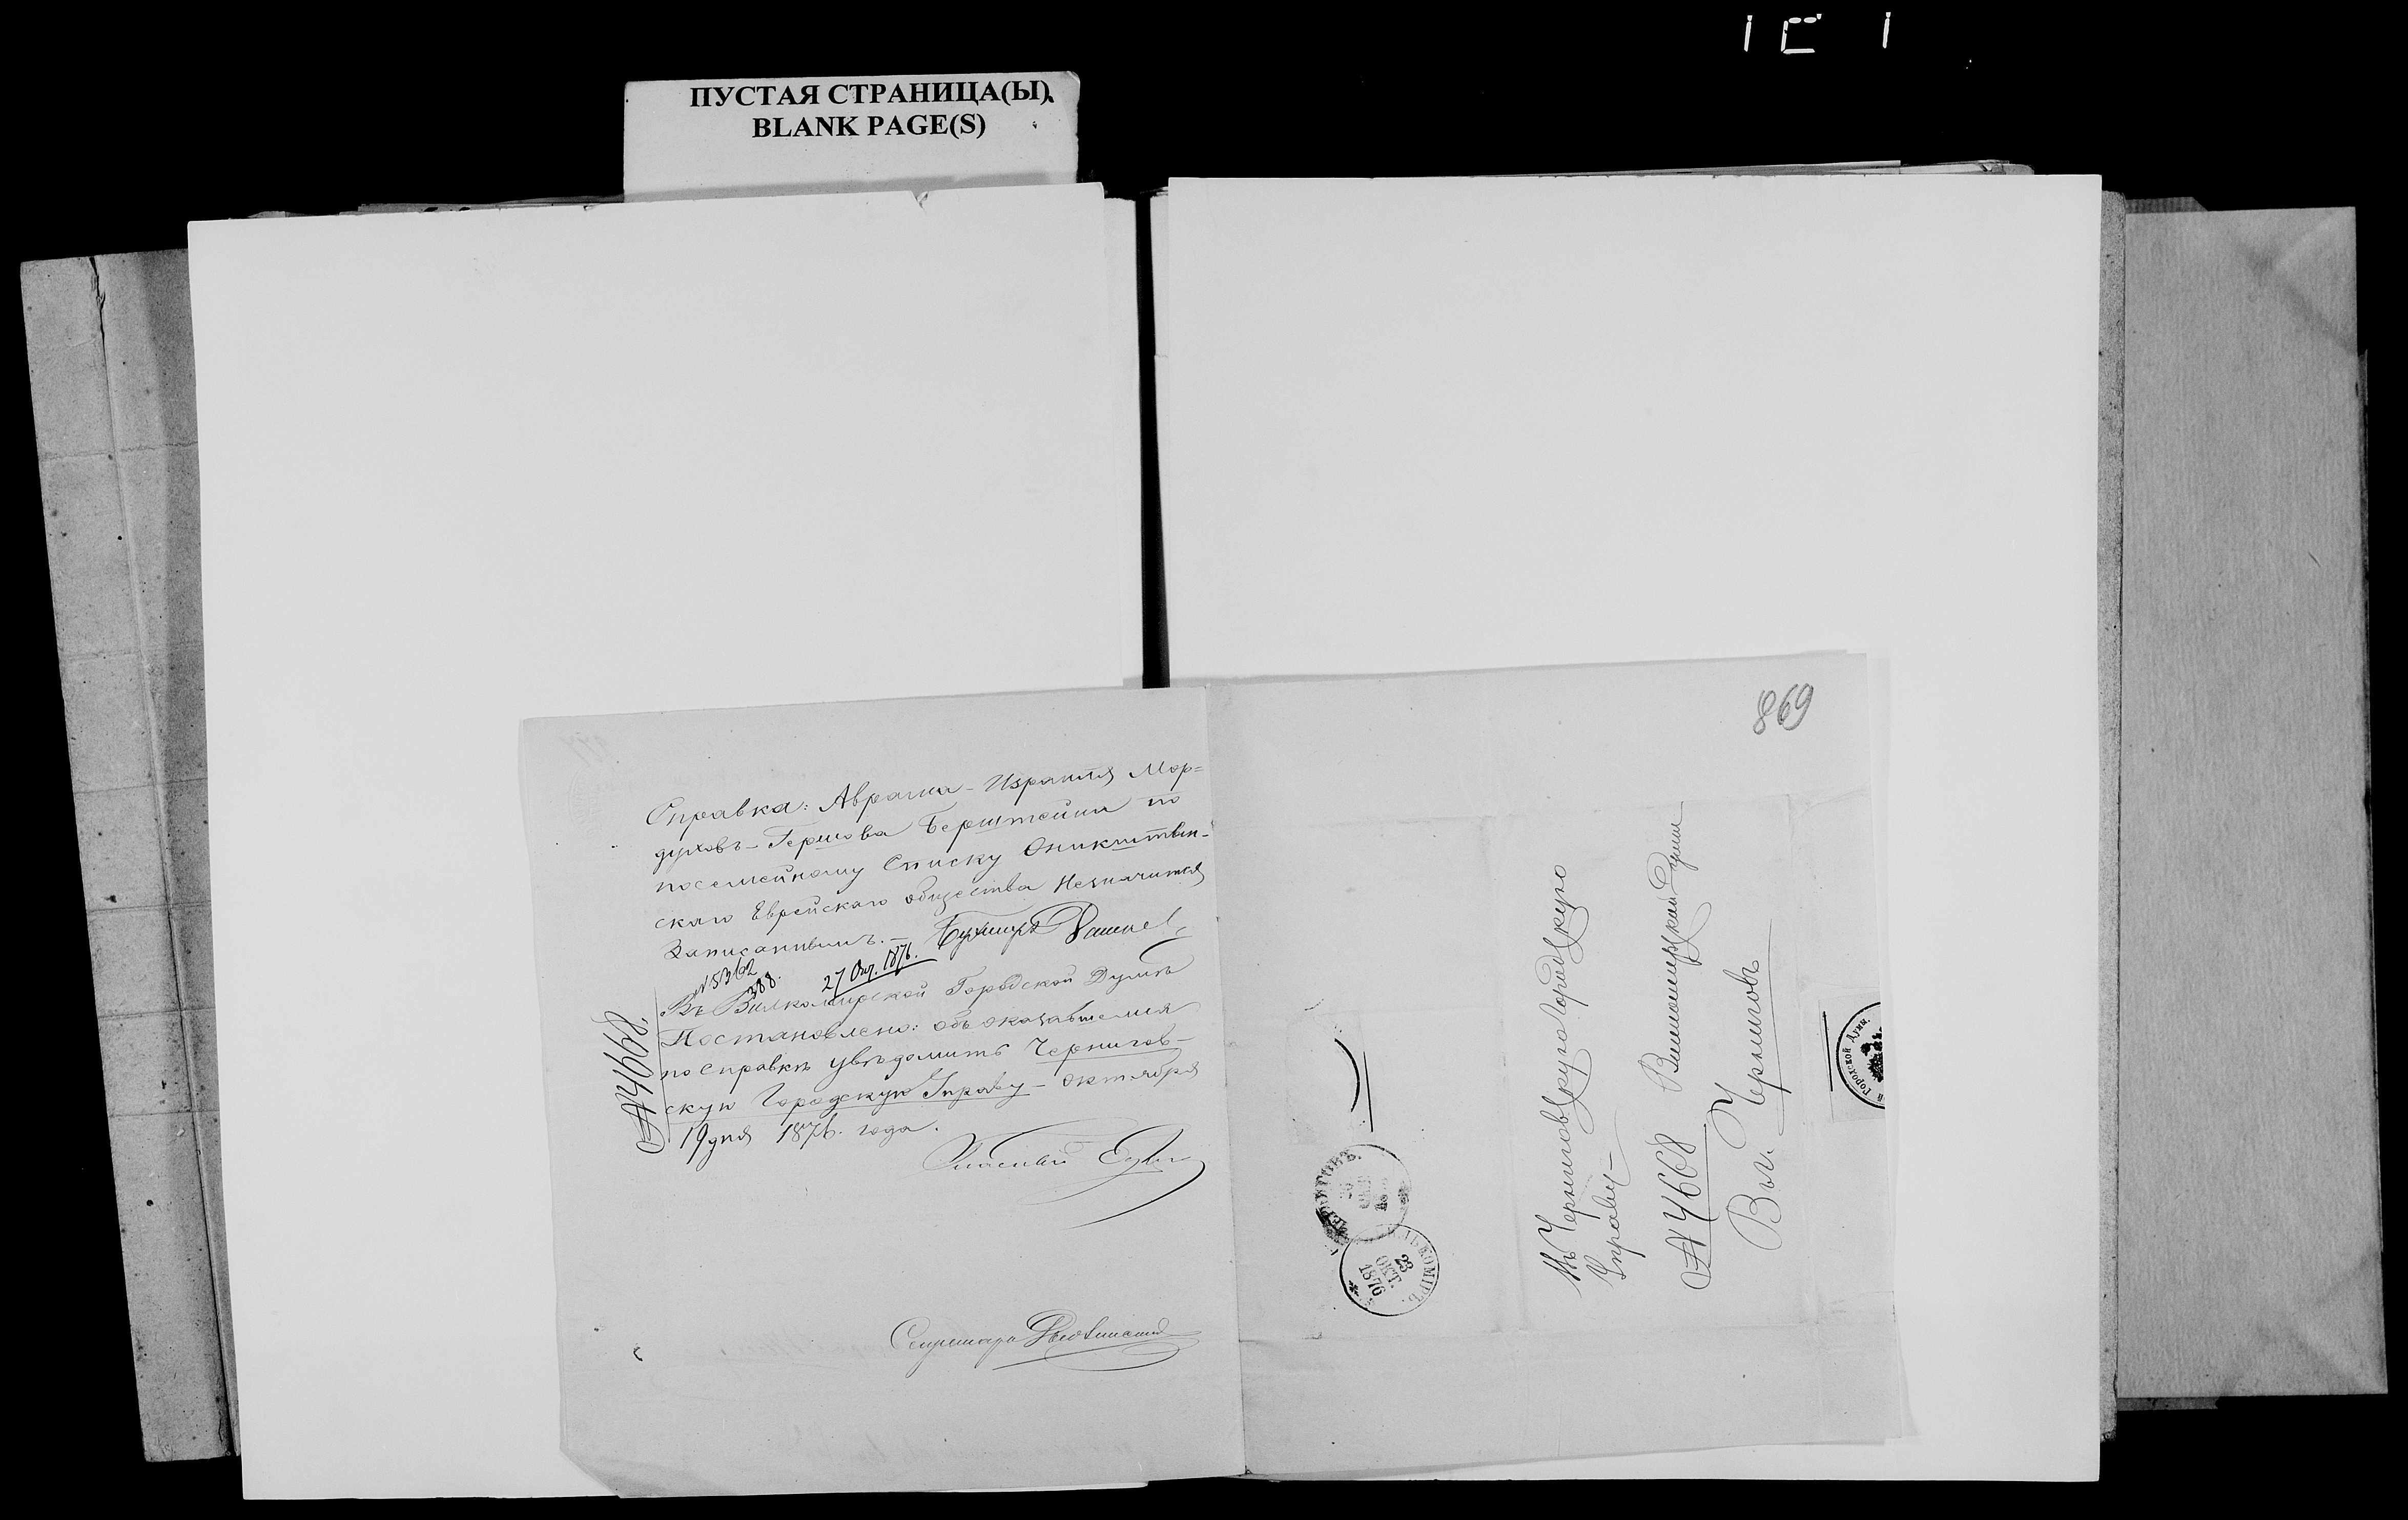 ПУСТАЯ СТРАНИЦА(Ы).
BLANK PAGE(S)
Справка: Аврама-Израиля Мор=
духовъ-Гершова Берштейна по
посемейному списку Оникштын-
скаго Еврейскаго общества незначится
Записаннымъ. — Бухгалтеръ
№ 5362
388.
27 Окт. 1876.
Въ Вилкомирской Городской Думѣ
Постановлено: объ оказавшемся
по справкѣ увѣдомить Чернигов-
скую Городскую Управу — Октября
19 дня 1876. года.
№ 4668.
Гласный
Секретарь
869
Въ Черниговскую Городскую
Управу —
№ 4668 Вилкомирской Думы
Въ г. Черниговъ
Городской Думы.
ВИЛЬКОМИРЪ.
23
ОКТ.
1876